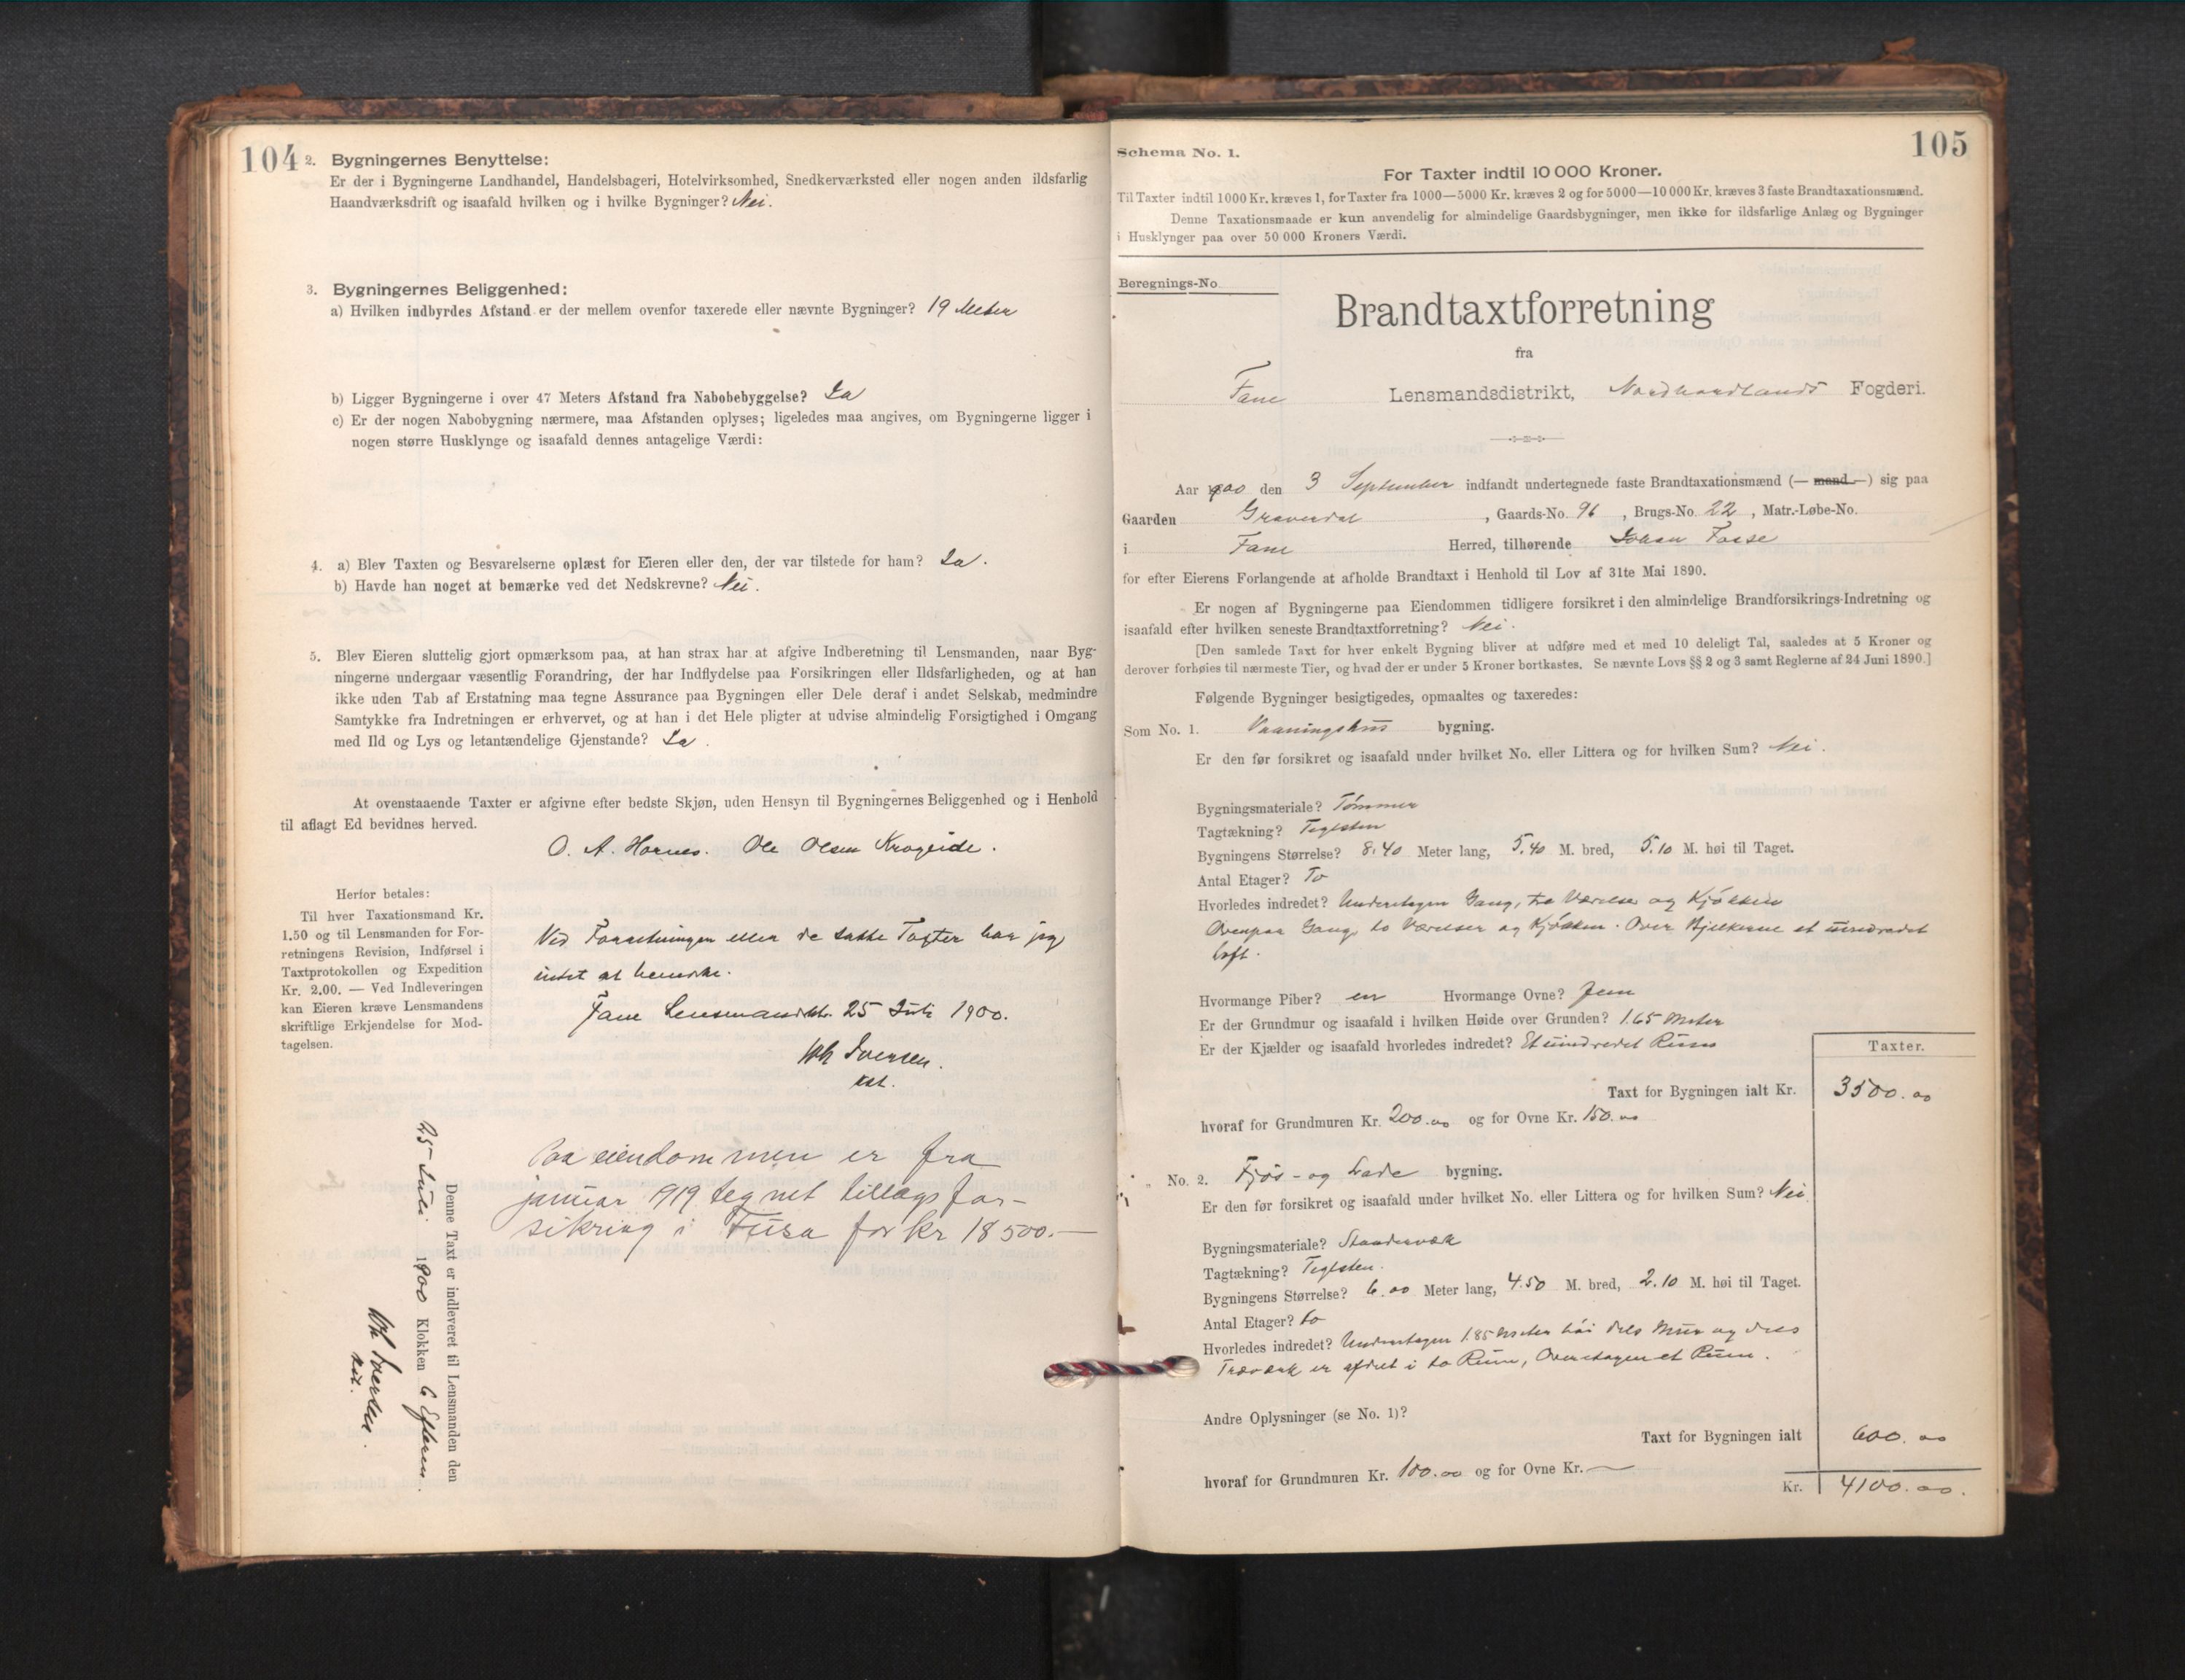 104
2. Bygningernes Benyttelse:
Er der i Bygningerne Landhandel, Handelsbageri, Hotelvirksomhed, Snedkerværksted eller nogen anden ildsfarlig
Haandværksdrift og isaafald hvilken og i hvilke Bygninger? Nei.
3. Bygningernes Beliggenhed:
a) Hvilken indbyrdes Afstand er der mellem ovenfor taxerede eller nævnte Bygninger? 19 Meter
b) Ligger Bygningerne i over 47 Meters Afstand fra Nabobebyggelse? Ja
c) Er der nogen Nabobygning nærmere, maa Afstanden oplyses; ligeledes maa angives, om Bygningerne ligger i
nogen større Husklynge og isaafald dennes antagelige Værdi:
4. a) Blev Taxten og Besvarelserne oplæst for Eieren eller den, der var tilstede for ham? Ja.
b) Havde han noget at bemærke ved det Nedskrevne? Nei.
5. Blev Eieren sluttelig gjort opmærksom paa, at han strax har at afgive Indberetning til Lensmanden, naar Byg-
ningerne undergaar væsentlig Forandring, der har Indflydelse paa Forsikringen eller Ildsfarligheden, og at han
ikke uden Tab af Erstatning maa tegne Assurance paa Bygningen eller Dele deraf i andet Selskab, medmindre
Samtykke fra Indretningen er erhvervet, og at han i det Hele pligter at udvise almindelig Forsigtighed i Omgang
med Ild og Lys og letantændelige Gjenstande? Ja.
At ovenstaaende Taxter er afgivne efter bedste Skjøn, uden Hensyn til Bygningernes Beliggenhed og i Henhold
til aflagt Ed bevidnes herved.
O. A. Hornes. Ole Olsen Krogeide.
Herfor betales:
Til hver Taxationsmand Kr.
1.50 og til Lensmanden for For-
retningens Revision, Indførsel i
Taxtprotokollen og Expedition
Kr. 2.00. — Ved Indleveringen
kan Eieren kræve Lensmandens
skriftlige Erkjendelse for Mod-
tagelsen.
Ved Forretningen eller de satte Taxter har jeg
intet at bemerke.
Fane Lensmandskt. 25 Juli 1900.
Iversen.
kst.
Paa eiendommen er fra
januar 919 tegnet tillægsfor-
sikring i Fusa for kr 18500.—
Denne Taxt er indleveret til Lensmanden den
25 Juli 1900 Klokken 6 Efterm.
Iversen.
kst.
105
Schema No. 1.
For Taxter indtil 10 000 Kroner.
Til Taxter indtil 1000 Kr. kræves 1, for Taxter fra 1000—5000 Kr. kræves 2 og for 5000—10 000 Kr. kræves 3 faste Brandtaxationsmænd.
Denne Taxationsmaade er kun anvendelig for almindelige Gaardsbygninger, men ikke for ildsfarlige Anlæg og Bygninger
i Husklynger paa over 50 000 Kroners Værdi.
Beregnings-No.
Brandtaxtforretning
fra
Fane Lensmandsdistrikt, Nordhordlands Fogderi.
Aar 1900 den 3 September indfandt undertegnede faste Brandtaxationsmænd (— mand —) sig paa
Gaarden Gravendal, Gaards-No. 96, Brugs-No. 22, Matr.-Løbe-No.
i Fane Herred, tilhørende Johan Fosse
for efter Eierens Forlangende at afholde Brandtaxt i Henhold til Lov af 31te Mai 1890.
Er nogen af Bygningerne paa Eiendommen tidligere forsikret i den almindelige Brandforsikrings-Indretning og
isaafald efter hvilken seneste Brandtaxtforretning? Nei.
[Den samlede Taxt for hver enkelt Bygning bliver at udføre med et med 10 deleligt Tal, saaledes at 5 Kroner og
derover forhøies til nærmeste Tier, og hvad der er under 5 Kroner bortkastes. Se nævnte Lovs §§ 2 og 3 samt Reglerne af 24 Juni 1890.]
Følgende Bygninger besigtigedes, opmaaltes og taxeredes:
Som No. 1. Vaaningshus bygning.
Er den før forsikret og isaafald under hvilket No. eller Littera og for hvilken Sum? Nei.
Bygningsmateriale? Tømmer
Tagtækning? Teglsten
Bygningens Størrelse? 8.40 Meter lang, 5.40 M. bred, 5.10 M. høi til Taget.
Antal Etager? To
Hvorledes indredet? Underetagen Gang, to Værelser og Kjøkken
Ovenpaa Gang, to Værelser og Kjøkken. Over Bjelkerne et uindredet
loft.
Hvormange Piber? en Hvormange Ovne? Fem
Er der Grundmur og isaafald i hvilken Høide over Grunden? 1.65 Meter
Er der Kjælder og isaafald hvorledes indredet? Et uindredet Rum
Taxter.
Taxt for Bygningen ialt Kr. 3500.00
hvoraf for Grundmuren Kr. 200.00 og for Ovne Kr. 150.00
No. 2. Fjøs- og Lade bygning.
Er den før forsikret og isaafald under hvilket No. eller Littera og for hvilken Sum? Nei
Bygningsmateriale? Standerværk
Tagtækning? Teglsten.
Bygningens Størrelse? 6.00 Meter lang, 4.50 M. bred, 2.10 M. høi til Taget.
Antal Etager? to
Hvorledes indredet? Underetagen 1.85 Meter høi dels Mur og dels
Træværk er afdelt i to Rum, Overetagen et Rum.
Andre Oplysninger (se No. 1)?
Taxt for Bygningen ialt 600.00
hvoraf for Grundmuren Kr. 100.00 og for Ovne Kr. —
Kr. 4100.00.